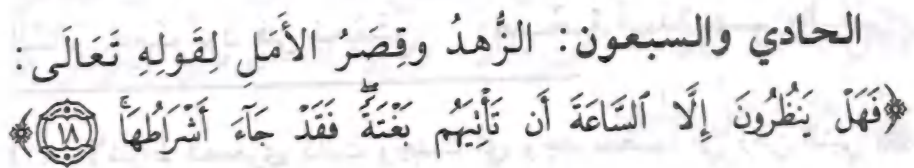 الحادي والسبعون: الزُّهدُ وقِصَرُ الأَمَلِ لِقَولِهِ تَعَالَى:
﴿فَهَلْ يَنظُرُونَ إِلَّا ٱلسَّاعَةَ أَن تَأْتِيَهُم بَغْتَةً ۖ فَقَدْ جَآءَ أَشْرَاطُهَا ۚ ١٨﴾